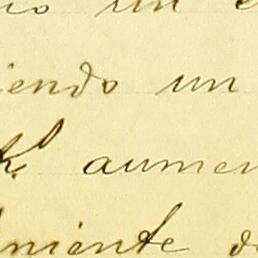 un e
iendo un
K. aumen
niente d